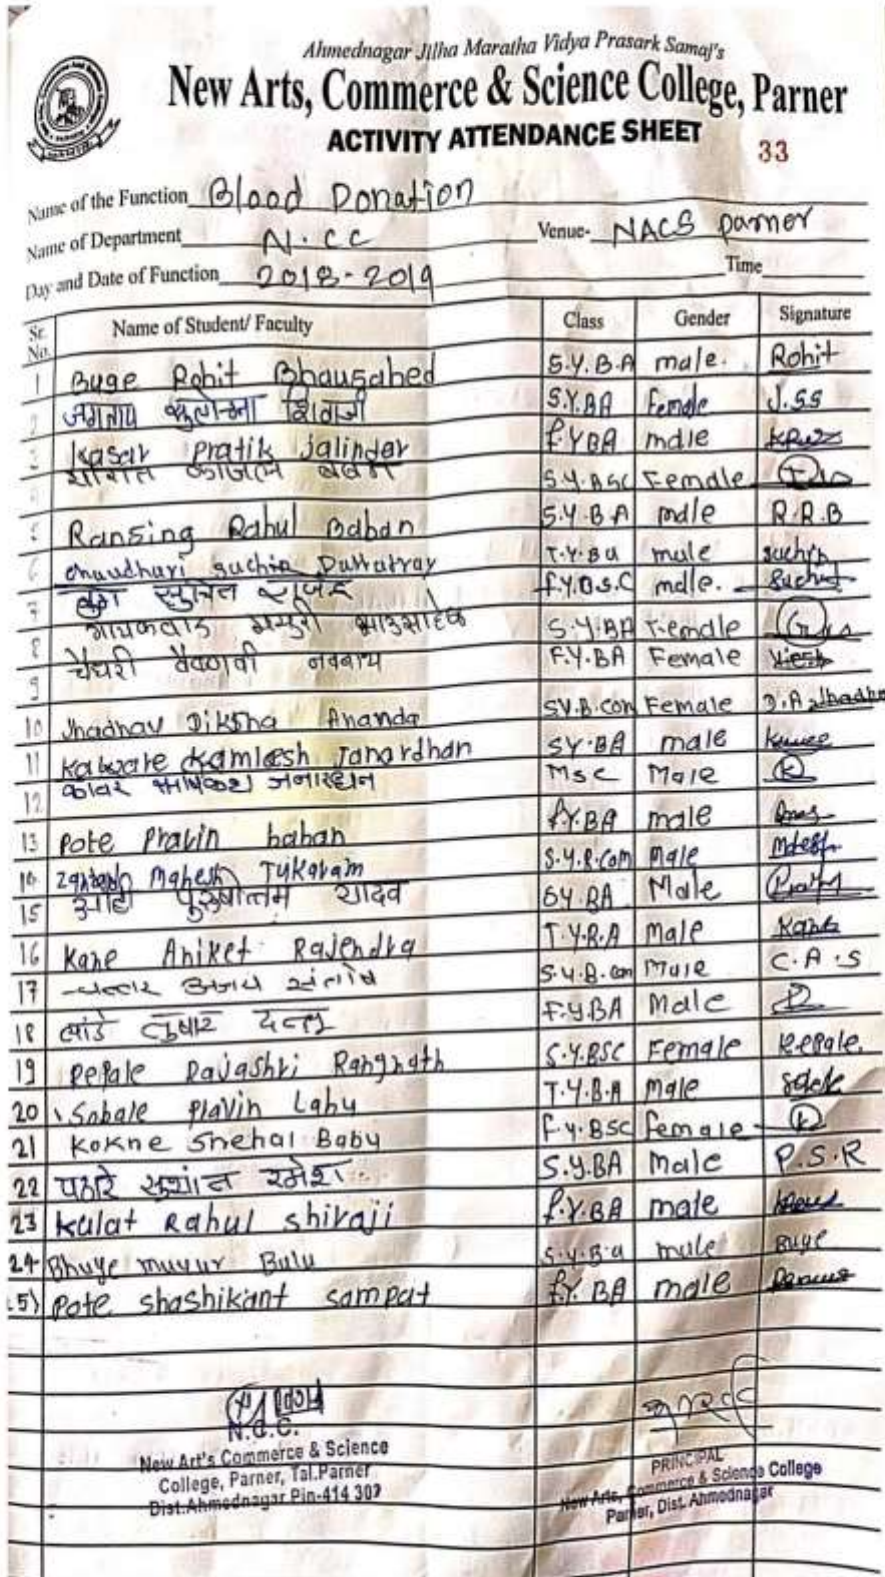 Ahmednagar Jilha Maratha Vidya Prasark Samaj's
New Arts, Commerce & Science College, Parner
ACTIVITY ATTENDANCE SHEET
33
Name of the Function Blood Donation
Name of Department N.CC Venue- NACS parner
Day and Date of Function 2018-2019 Time
Sr. No. Name of Student/ Faculty Class Gender Signature
1 Buge Rohit Bhausahed S.Y.B.A male. Rohit
2 जगताप शिवाजी S.Y.BA Female J.SS
3 Kasar Pratik jalinder f.YBA male
4 काजल बबन S.Y.BSC Female
5 Ransing Rahul Baban S.Y.B.A male R.R.B
6 Chaudhari suchir Dattatray T.Y.Ba male
7 F.Y.B.S.C male.
8 गायकवाड मयुरी भाउसाहेब S.Y.BA Female
9 चौधरी वैष्णवी नवनाथ F.Y.BA Female
10 Jhadhav Diksha Ananda SY.B.com Female D.A.Jhadhav
11 Kaware Kamlesh Janardhan SY.BA male
12 कावरे जनारधन Msc Male
13 Pote Pravin baban f.Y.BA male
14 Mahesh Tukaram S.Y.B.Com Male
15 पुरुषोत्तम यादव SY.BA Male
16 Kane Aniket Rajendra T.Y.B.A Male Kane
17 अजय संतोष S.Y.B.com Male C.A.S
18 तुषार दत्तु F.Y.BA Male
19 Repale Rajashri Rangnath S.Y.BSC Female Repale.
20 Sobale Pravin Lahu T.Y.B.A Male
21 Kokne Snehal Baby F.Y.BSC female
22 पठारे सुशांत रमेश S.Y.BA Male P.S.R
23 Kulat Rahul shivaji f.Y.BA male
24 Bhuye muyur Bulu S.Y.B.a male Buye
25) Pote shashikant sampat f.Y.BA male
N.C.C.
New Art's Commerce & Science
College, Parner, Tal.Parner
Dist.Ahmednagar Pin-414 302
PRINCIPAL
New Arts, Commerce & Science College
Parner, Dist. Ahmednagar